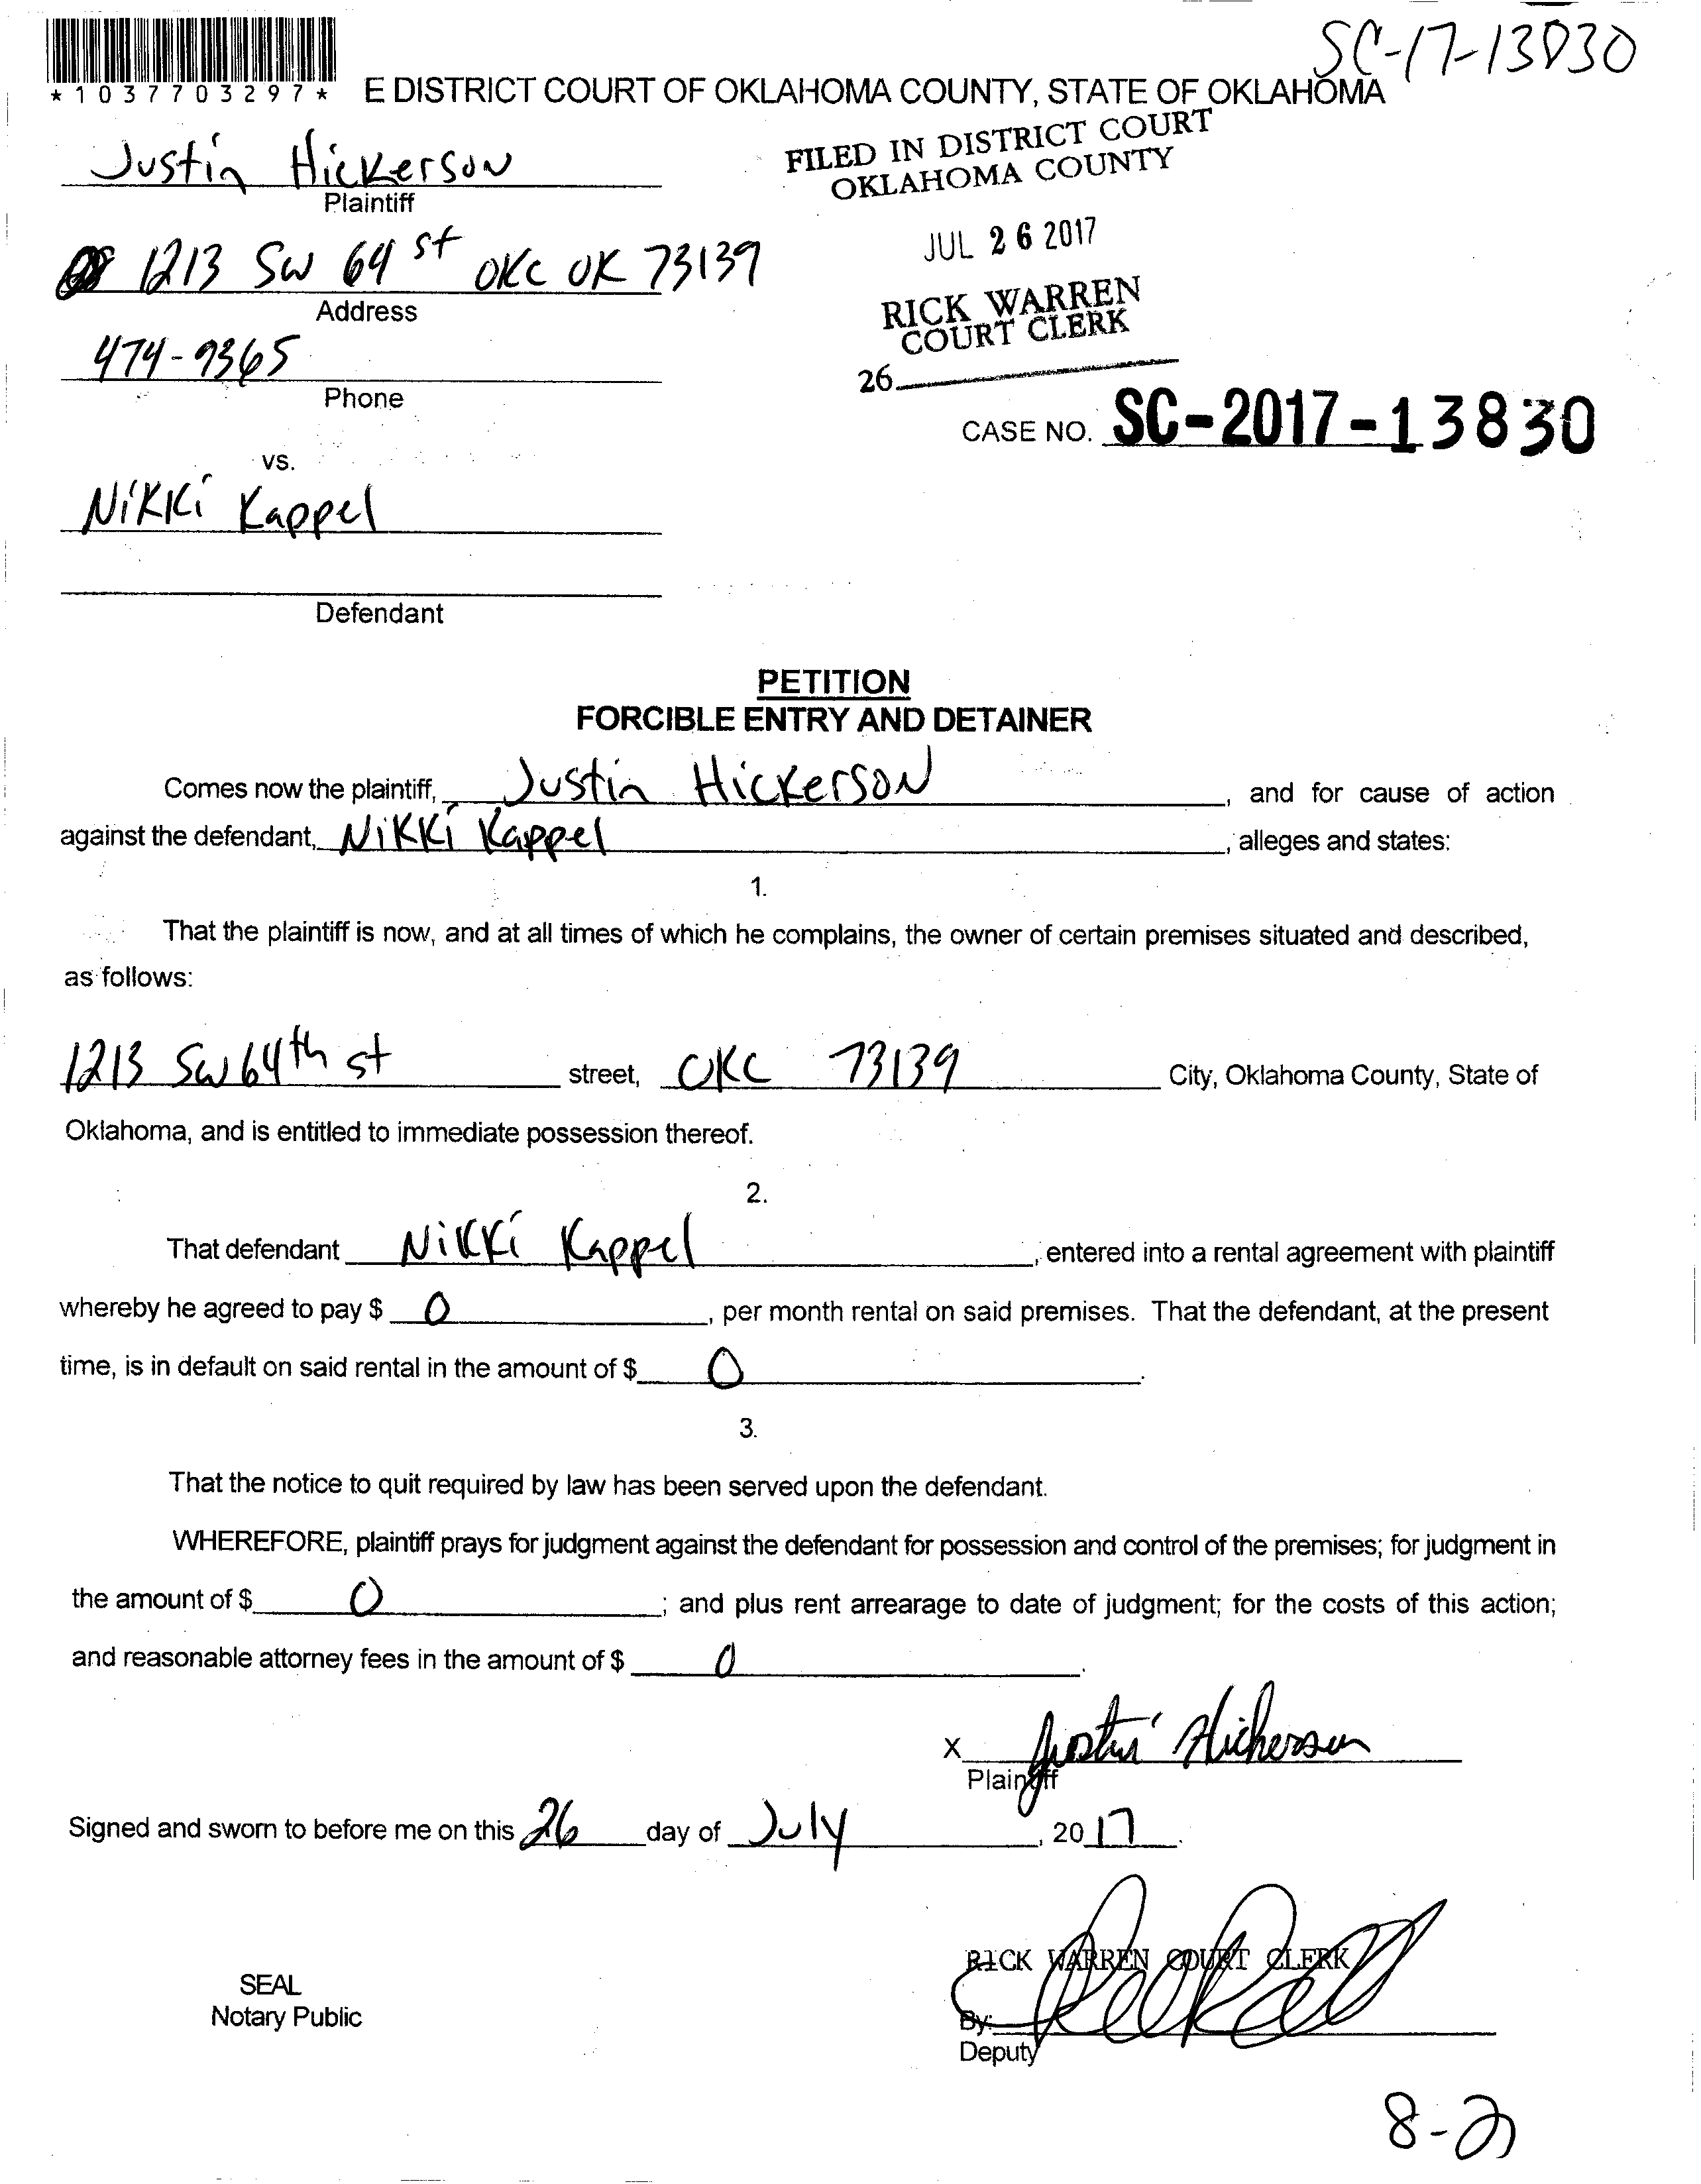 SC-17-13830
*1037703297*
E DISTRICT COURT OF OKLAHOMA COUNTY, STATE OF OKLAHOMA
Justin Hickerson
Plaintiff
FILED IN DISTRICT COURT
OKLAHOMA COUNTY
JUL 26 2017
RICK WARREN
COURT CLERK
26
1213 SW 64 st OKC OK 73139
Address
474-9365
Phone
CASE NO. SC-2017-13830
vs.
Nikki Kappel
Defendant
PETITION
FORCIBLE ENTRY AND DETAINER
Comes now the plaintiff, Justin Hickerson, and for cause of action
against the defendant, Nikki Kappel, alleges and states:
1.
That the plaintiff is now, and at all times of which he complains, the owner of certain premises situated and described,
as follows:
1213 SW 64th st street, OKC 73139 City, Oklahoma County, State of
Oklahoma, and is entitled to immediate possession thereof.
2.
That defendant Nikki Kappel, entered into a rental agreement with plaintiff
whereby he agreed to pay $ 0, per month rental on said premises. That the defendant, at the present
time, is in default on said rental in the amount of $ 0.
3.
That the notice to quit required by law has been served upon the defendant.
WHEREFORE, plaintiff prays for judgment against the defendant for possession and control of the premises; for judgment in
the amount of $ 0; and plus rent arrearage to date of judgment; for the costs of this action;
and reasonable attorney fees in the amount of $ 0.
X Justin Hickerson
Plaintiff
Signed and sworn to before me on this 26 day of July, 2017.
RICK WARREN COURT CLERK
SEAL
Notary Public
By:
Deputy